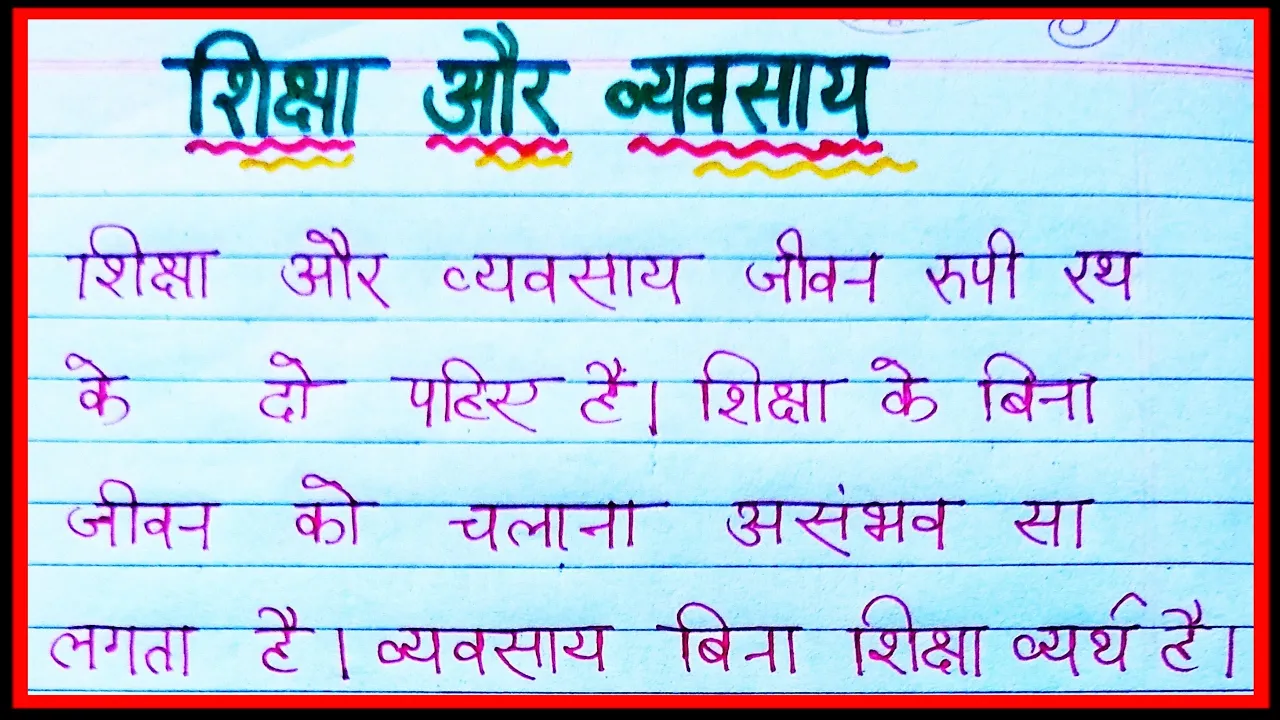 शिक्षा और व्यवसाय
शिक्षा और व्यवसाय जीवन रुपी रथ
के दो पहिए हैं। शिक्षा के बिना
जीवन को चलाना असंभव सा
लगता है। व्यवसाय बिना शिक्षा व्यर्थ है।